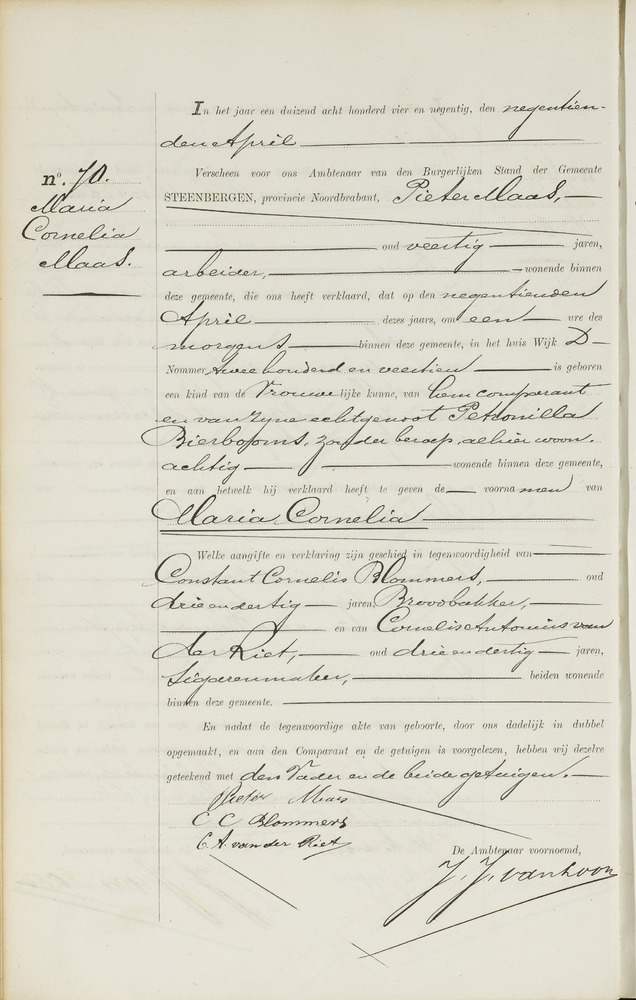 In het jaar een duizend acht honderd vier en negentig, den negentien-
den April
Verscheen voor ons Ambtenaar van den Burgerlijken Stand der Gemeente
nº. 70.
STEENBERGEN, provincie Noordbrabant, Pieter Maas,
Maria
Cornelia
Maas.
oud veertig jaren,
arbeider, wonende binnen
deze gemeente, die ons heeft verklaard, dat op den negentienden
April dezes jaars, om een ure des
morgens binnen deze gemeente, in het huis Wijk D
Nommer twee honderd en veertien is geboren
een kind van de Vrouwelijke kunne, van hem comparant
en van zyne echtgenoot Petronilla
Bierbooms, zonder beroep, alhier woon-
achtig wonende binnen deze gemeente,
en aan hetwelk hij verklaard heeft te geven de voornamen van
Maria Cornelia
Welke aangifte en verklaring zijn geschied in tegenwoordigheid van
Constant Cornelis Blommers, oud
drie en dertig jaren, Broodbakker,
en van Cornelis Antonius van
der Riet, oud drie en dertig jaren,
Sigarenmaker, beiden wonende
binnen deze gemeente.
En nadat de tegenwoordige akte van geboorte, door ons dadelijk in dubbel
opgemaakt, en aan den Comparant en de getuigen is voorgelezen, hebben wij dezelve
geteekend met den Vader en de beide getuigen.
Pieter Maas
C C Blommers
C. A. van der Riet
De Ambtenaar voornoemd,
J. J. van Loon